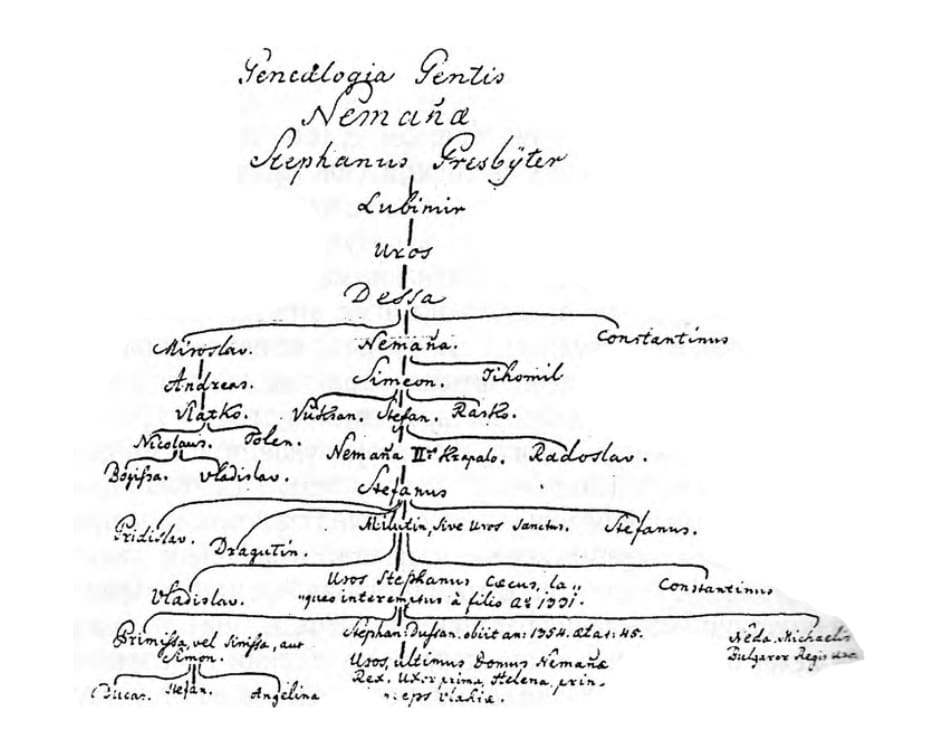 Genealogia Gentis
Nemañæ
Stephanus Presbÿter
Lubimir
Uros
Dessa
Miroslav. Nemaña. Constantinus
Andreas. Simeon. Tihomil
Vlatko. Vukan. Stefan. Rasko.
Nicolaus. Tolen. Nemaña II Krapalo. Radoslav.
Bogissa. Vladislav. Stefanus
Pridislav. Dragutin. Milutin, sive Uros Sanctus. Stefanus.
Vladislav. Uros Stephanus Cæcus, la„ Constantinus
„queo interemtus à filio Aº 1331.
Primissa, vel Sinissa, aut Stephan: Dussan. obiit an: 1354. Ætat: 45. Neda. Michaelis
Simon. Uros, ultimus Domus Nemañæ Bulgaror Regis
Ducas. Stefan. Angelina Rex. Uxor prima, Helena, prin„
ceps Vlahiæ.